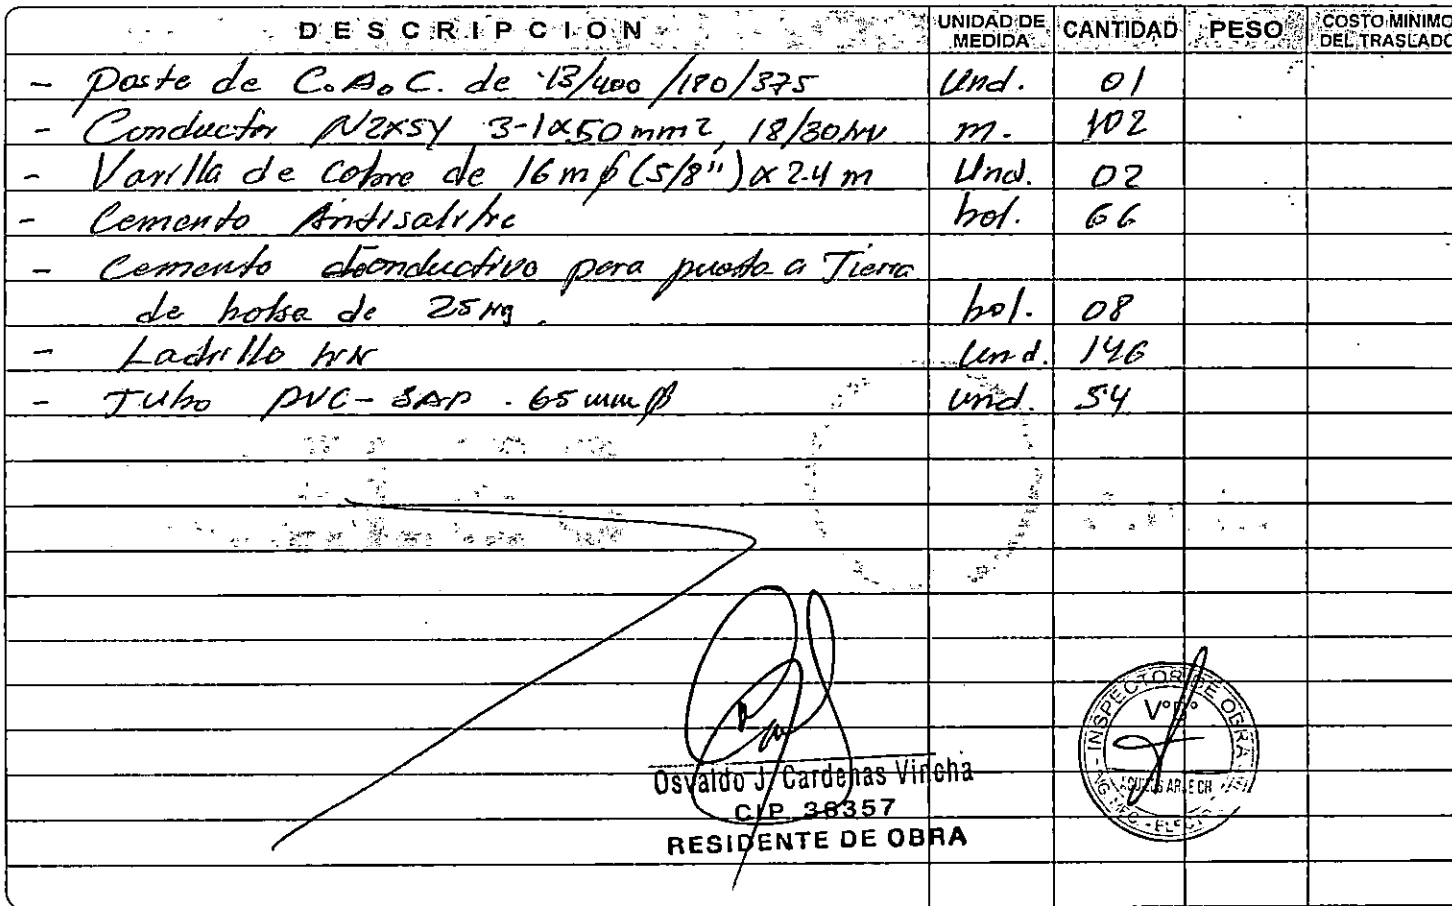 DESCRIPCION UNIDAD DE MEDIDA CANTIDAD PESO COSTO MINIMO DEL TRASLADO
- Poste de C.A.C. de 13/400/180/375 Und. 01
- Conductor N2XSY 3-1x50mm2, 18/30kv m. 102
- Varilla de cobre de 16 mφ (5/8") x 2.4 m Und. 02
- Cemento Antisalitre bol. 66
- Cemento conductivo para puesta a Tierra
de bolsa de 25 kg. bol. 08
- Ladrillo KK Und. 146
- Tubo PVC-SAP. 65 mmφ und. 54
Osvaldo J. Cardenas Vincha
CIP 38357
RESIDENTE DE OBRA
INSPECTOR DE OBRA
V°B°